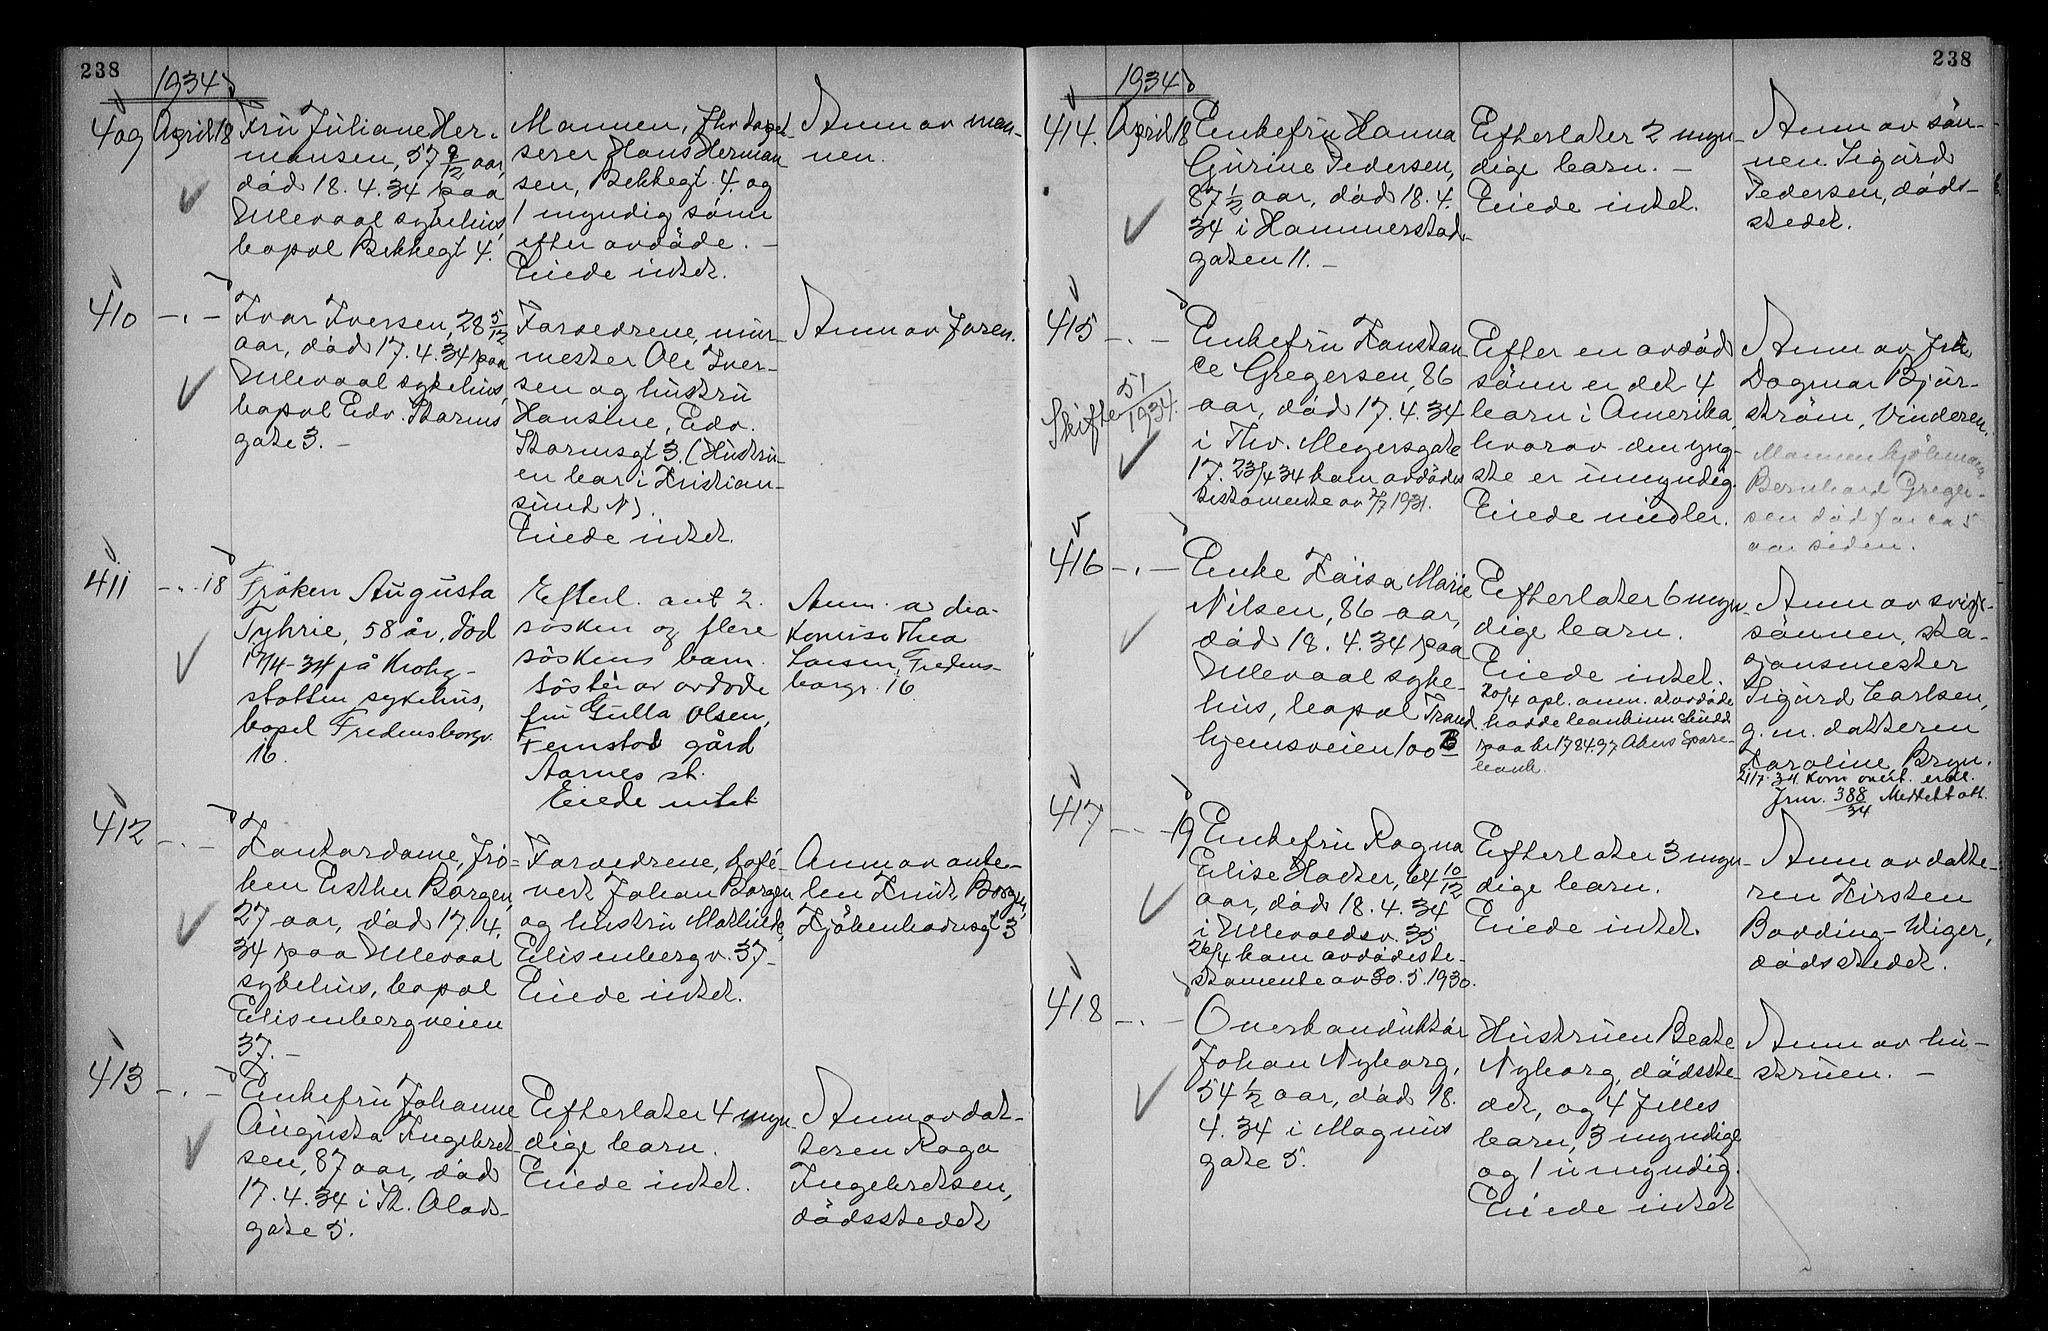 238
1934
409 April 18 Fru Juliane Her-
mansen, 57 9/12 aar,
död 18. 4. 34 paa
Ullevaal sykehus,
bopæl Bekkegt 4.
Mannen,
Hans Herman-
sen, Bekkegt. 4. og
1 myndig sönn
efter avdöde. -
Eiede intet.
Anm av man-
nen.
410 -"- Ivar Iversen, 28 5/12
aar, död 17. 4. 34 paa
Ullevaal sykehus,
bopæl Edv. Storms
gate 3. -
Forældrene, mur-
mester Ole Iver-
sen og hustru
Hansine, Edv.
Stormsgt 3. (Hustru-
en bor i Kristian-
sund N).
Eiede intet.
Anm av faren.
411 -"- 18 Fröken Augusta
Tyhrie, 58 år, död
17/4-34 på Krohg-
stötten sykehus,
bopel Fredensborgv.
16.
Efterl. ant 2.
sösken og flere
söskens barn.
söster av avdöde
fru Gulla Olsen,
Femstad gård
Aarnes st.
Eiede intet
Anm. a dia-
konisse Thea
Larsen, Fredens-
borgv. 16
412 -"- Kontordame, frö-
ken Esther Borgen,
27 aar, död 17. 4.
34 paa Ullevaal
sykehus, bopæl
Elisenbergveien
37. -
Forældrene, kafé-
vert Johan Borgen
og hustru Mathilde,
Elisenbergv. 37-
Eiede intet.
Anm av onke-
len Knut Borgen,
Kjöbenhavnsgt 3
413 -"- Enkefru Johanne
Augusta Ingebret-
sen, 87 aar, död
17. 4. 34 i St. Olavs-
gate 5.
Efterlater 4 myn-
dige barn.
Eiede intet.
Anm av dat-
teren Raga
Ingebretsen,
dödsstedet
238
1934
414. April 18 Enkefru Hanna
Gurine Pedersen,
87 1/2 aar, död 18. 4.
34 i Hammerstad-
gaten 11. -
Efterlater 2 myn-
dige barn. -
Eiede intet.
Anm av sön-
nen Sigurd
Pedersen, döds-
stedet.
415 -"- Enkefru Konstan-
ce Gregersen, 86
aar, död 17. 4. 34
i Thv. Meyersgate
17. 23/4 34 kom avdödes
testamente av 2/7 1931.
Skifte 51/1934.
Efter en avdöd
sönn er det 4
barn i Amerika,
hvorav den yng-
ste er umyndig.
Eiede midler.
Anm av frk
Dagmar Bjur-
ström, Vinderen.
Mannen
Bernhard Greger-
sen död for ca 5
aar siden.
416 -"- Enke Kaisa Marie
Nilsen, 86 aar,
död 18. 4. 34 paa
Ullevaal syke-
hus, bopæl Trond-
hjemsveien 100 B
Efterlater 6 myn-
dige barn.
Eiede intet.
20/4 opl. anm. at avdöde
hadde bankinnskudd
paa kr 178497 Akers Spare-
bank.
Anm av sviger-
sönnen, sta-
sjonsmester
Sigurd Carlsen,
g. m. datteren
Karoline, Bryn.
21/7-34 kom overf. erkl.
Jrnr. 388/34 Meddelt att.
417 -"- 19 Enkefru Ragna
Elise Hacker, 64 10/12
aar, död 18. 4. 34
i Ullevoldsv. 35
26/4 kom avdödes te-
stamente av 30. 5. 1930.
Efterlater 3 myn-
dige barn.
Eiede intet.
Anm av datte-
ren Kirsten
Bovding-Wiger,
dödsstedet.
418 -"- Overkonduktör
Johan Nyborg,
54 1/2 aar, död 18.
4. 34 i Magnus
gate 5.
Hustruen Beate
Nyborg, dödsste-
det, og 4 felles
barn, 3 myndige
og 1 umyndig.
Eiede intet
Anm av hu-
struen. -